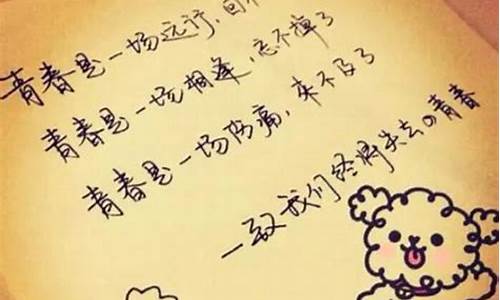 青春是一场远行,回不
青春是一场相逢,忘不掉了
青春是一场伤痛,来不及了
一致我们终将失去の青春